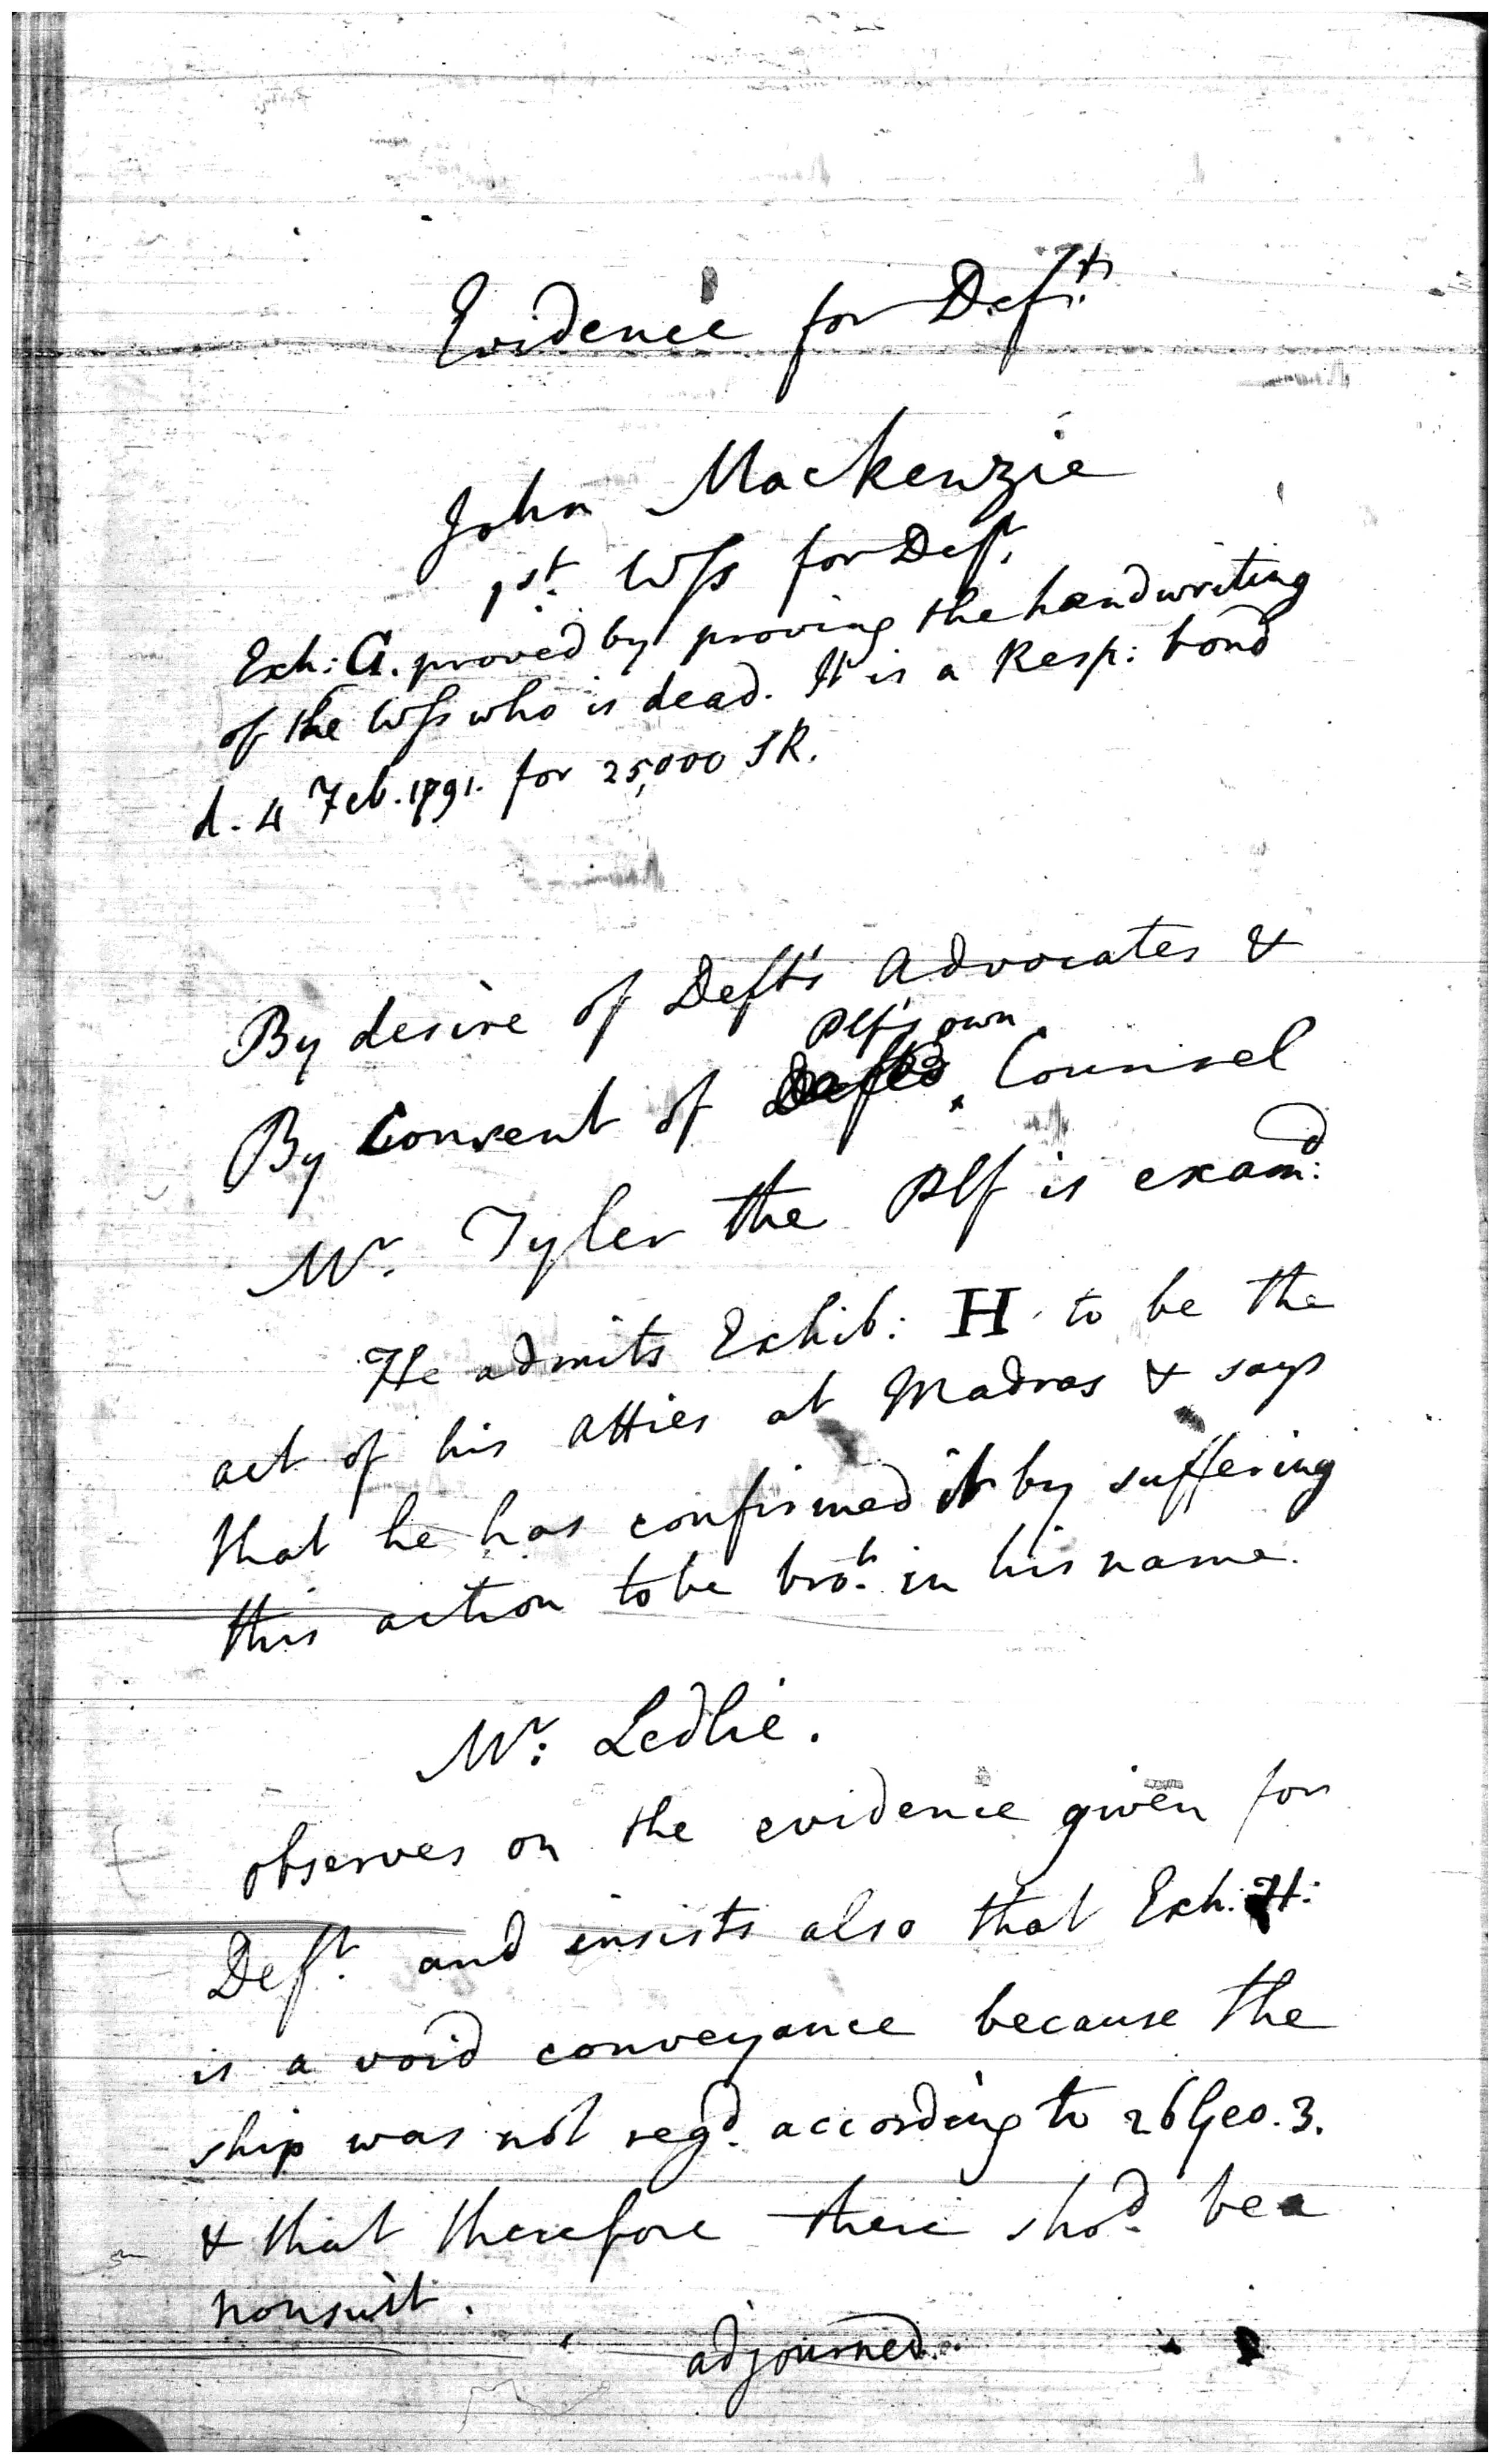 Evidence for Defts
John Mackenzie
1st. Wss for Deft.
Exh: G. proved by proving the handwriting
of the Wss who is dead. It is a Resp: bond
d. 4 Feb. 1791. for 25,000 SR.
By desire of Deft's Advocates &
Plf's own
By Consent of Counsel
Mr. Tyler the Plf is examd:
He admits Exhib: H to be the
act of his Atties at Madras & says
that he has confirmed it by suffering
this action to be brot. in his name.
Mr: Ledlie.
observes on the evidence given for
Deft. and insists also that Exh: H:
is a void conveyance because the
ship was not regd. according to 26 Geo. 3.
& that therefore there shod. be a
nonsuit.
adjourned.